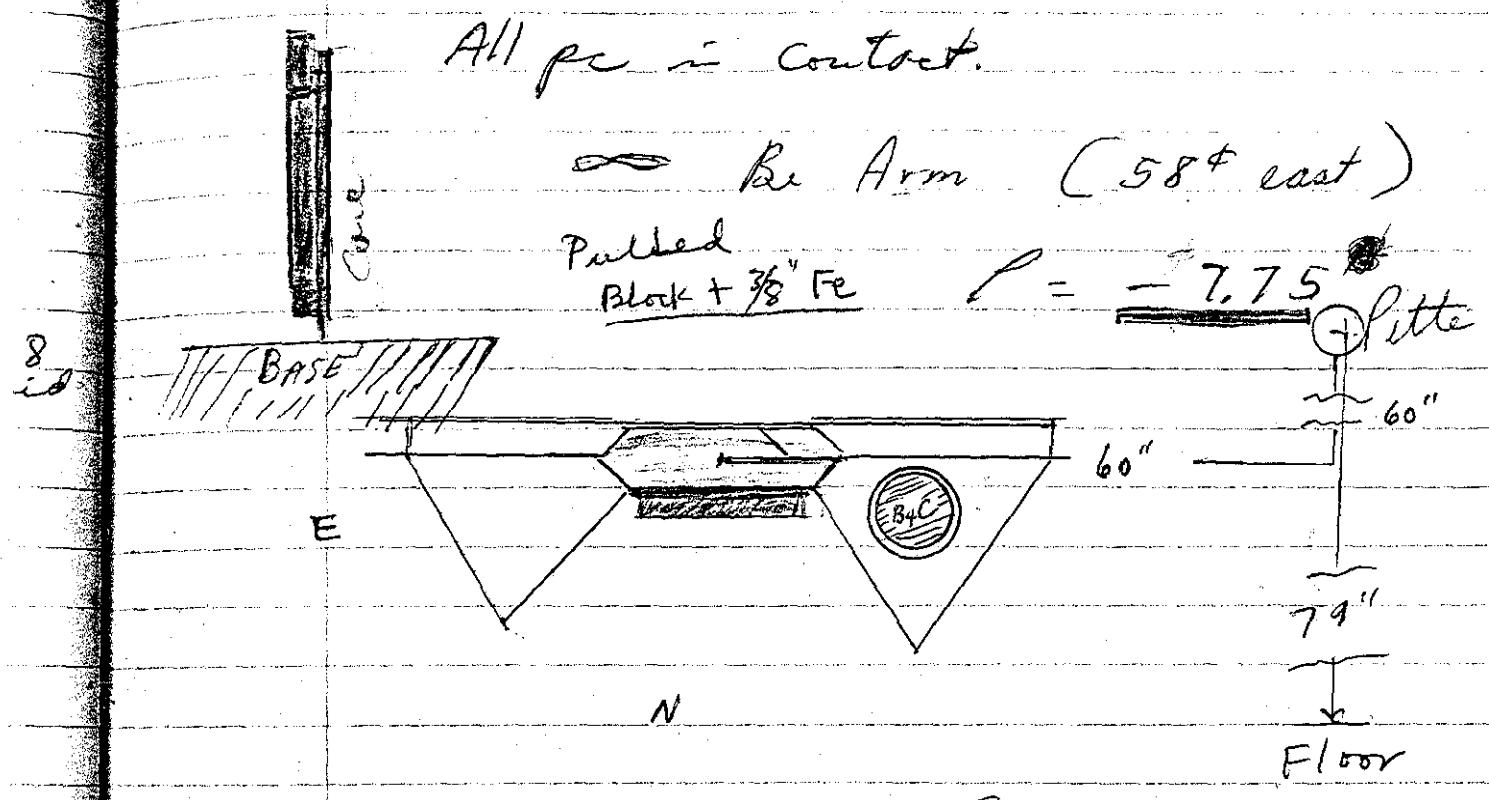 All pc in Contact.
∞ Be Arm (58¢ east)
Pulled
Block + 3/8" Fe
ρ = - 7.75
Core
8
id
BASE
60"
60"
B4C
E
79"
N
Floor